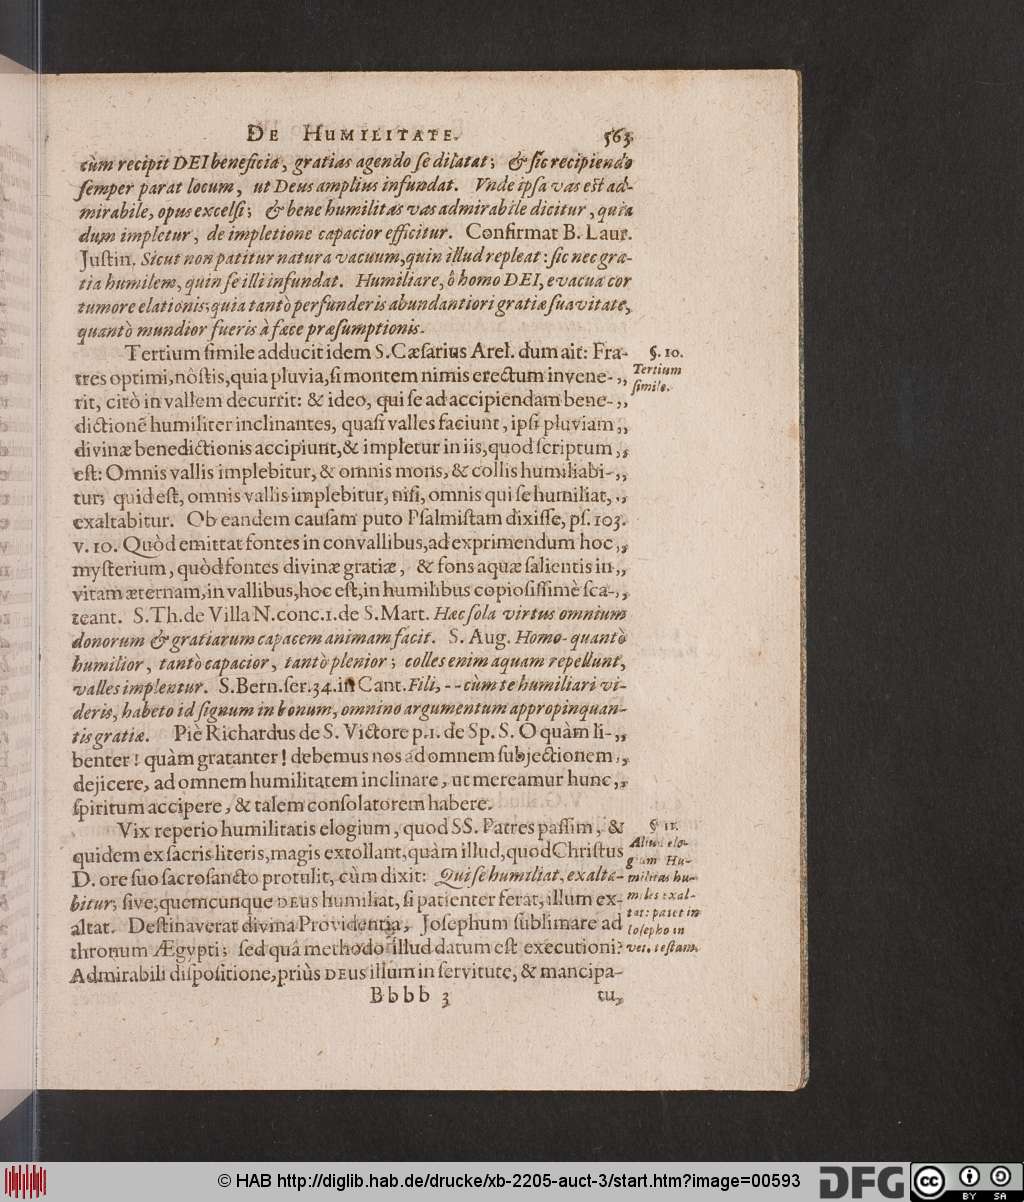 DE HUMILITATE. 563
cùm recipit DEI beneficia, gratias agendo se dilatat; & sic recipiendo
semper parat locum, ut Deus amplius infundat. Vnde ipsa vas est ad-
mirabile, opus excelsi; & bene humilitas vas admirabile dicitur, quia
dum impletur, de impletione capacior efficitur. Confirmat B. Laur.
Justin. Sicut non patitur natura vacuum, quin illud repleat: sic nec gra-
tia humilem, quin se illi infundat. Humiliare, ô homo DEI, evacua cor
tumore elationis; quia tantò perfunderis abundantiori gratiæ suavitate,
quantò mundior fueris à fæce præsumptionis.
Tertium simile adducit idem S. Cæsarius Arel. dum ait: Fra- §. 10.
tres optimi, nôstis, quia pluvia, si montem nimis erectum invene- ,, Tertium
rit, citò in vallem decurrit: & ideo, qui se ad accipiendam bene- ,, simile.
dictionē humiliter inclinantes, quasi valles faciunt, ipsi pluviam ,,
divinæ benedictionis accipiunt, & impletur in iis, quod scriptum ,,
est: Omnis vallis implebitur, & omnis mons, & collis humiliabi- ,,
tur; quid est, omnis vallis implebitur, nisi, omnis qui se humiliat, ,,
exaltabitur. Ob eandem causam puto Psalmistam dixisse, ps. 103.
v. 10. Quòd emittat fontes in convallibus, ad exprimendum hoc ,,
mysterium, quòd fontes divinæ gratiæ, & fons aquæ salientis in ,,
vitam æternam, in vallibus, hoc est, in humilibus copiosissimè sca- ,,
teant. S. Th. de Villa N. conc. 1. de S. Mart. Hæc sola virtus omnium
donorum & gratiarum capacem animam facit. S. Aug. Homo quantò
humilior, tantò capacior, tantò plenior; colles enim aquam repellunt,
valles implentur. S. Bern. ser. 34. in Cant. Fili, - - cùm te humiliari vi-
deris, habeto id signum in bonum, omnino argumentum appropinquan-
tis gratiæ. Piè Richardus de S. Victore p. 1. de Sp. S. O quàm li- ,,
benter! quàm gratanter! debemus nos ad omnem subjectionem ,,
dejicere, ad omnem humilitatem inclinare, ut mereamur hunc ,,
spiritum accipere, & talem consolatorem habere.
Vix reperio humilitatis elogium, quod SS. Patres passim, & §. 11.
quidem ex sacris literis, magis extollant, quàm illud, quod Christus Aliud elo-
D. ore suo sacrosancto protulit, cùm dixit: Qui se humiliat, exalta- gium Hu-
bitur; sive, quemcunque DEUS humiliat, si patienter ferat, illum ex- militas hu-
altat. Destinaverat divina Providentia, Josephum sublimare ad miles exal-
thronum Ægypti; sed quâ methodo illud datum est executioni? tat: patet in
Admirabili dispositione, priùs DEUS illum in servitute, & mancipa- Iosepho in
vet. testam.
Bbbb 3 tu,
© HAB http://diglib.hab.de/drucke/xb-2205-auct-3/start.htm?image=00593
DFG
cc BY SA